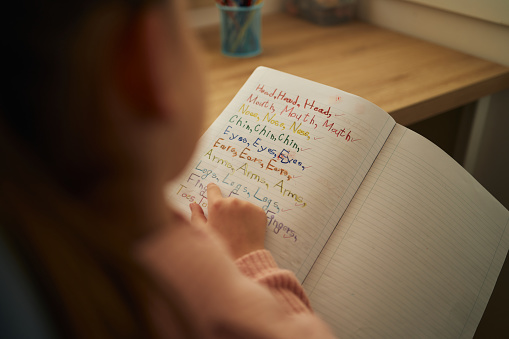 Head, Head, Head,
Mouth, Mouth, Mouth
Nose, Nose, Nose,
Chin, Chin, Chin,
Eyes, Eyes, Eyes
Ears, Ears, Ears,
Arms, Arms, Arms,
Legs, Legs, Legs,
Fingers
Toes